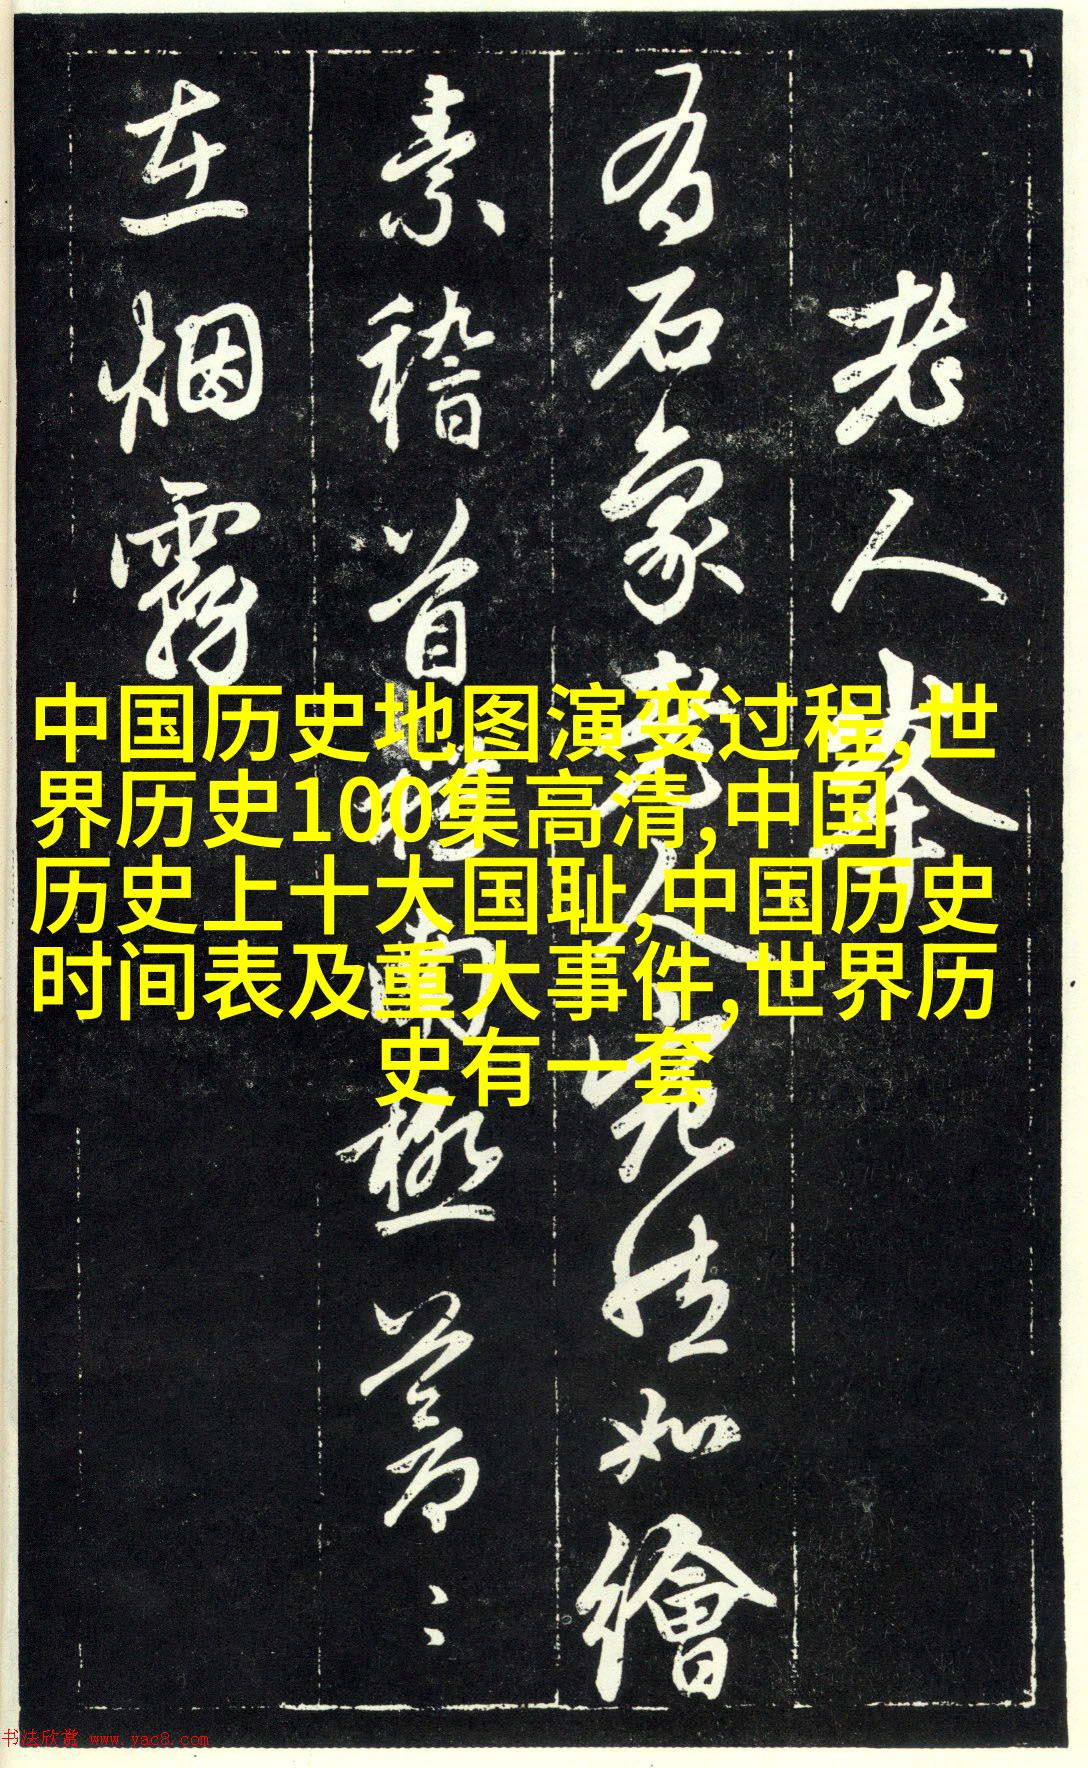 老人峯
有石象老人宛如繪
素稽首南極蒼〻
在烟霧
中国历史地图演变过程,世
界历史100集高清,中国
历史上十大国耻,中国历史
时间表及重大事件,世界历
史有一套
书法欣赏 www.yac8.com